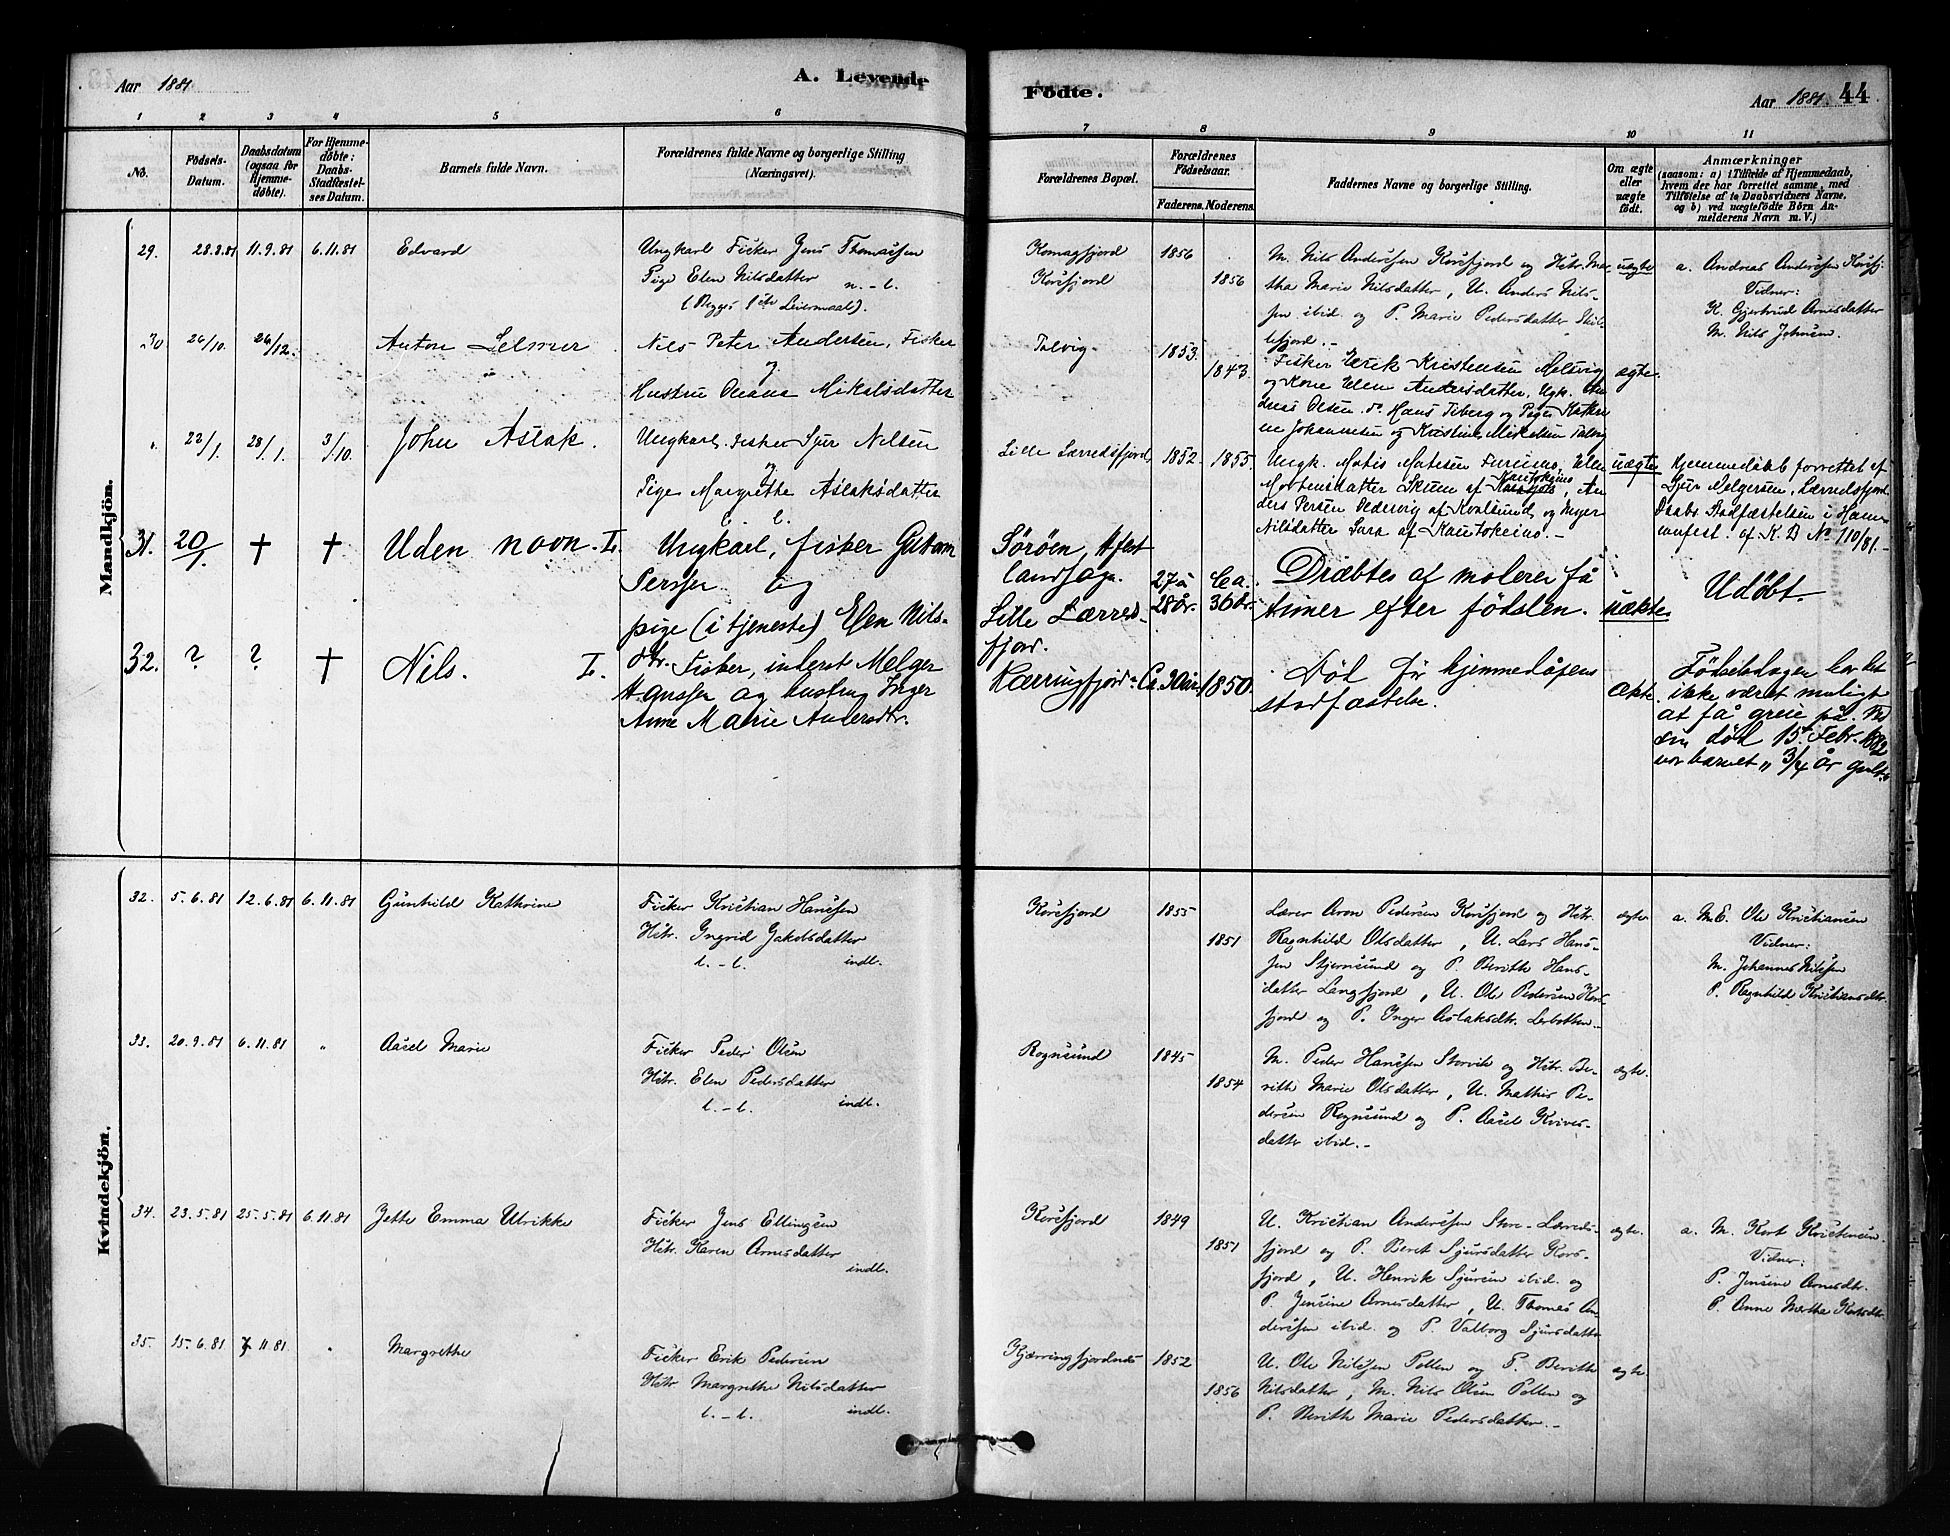 Aar 1881
A. Levende
Födte.
Aar 1881. 44
1 2 3 4 5 6 7 8 9 10 11
No.
Födsels-Datum.
Daabsdatum (ogsaa for Hjemmedöbte).
For Hjemmedöbte: Daabs-Stadfæstelses Datum.
Barnets fulde Navn.
Forældrenes fulde Navne og borgerlige Stilling (Næringsvei).
Forældrenes Bopæl.
Forældrenes Födselsaar.
Faderens. Moderens.
Faddernes Navne og borgerlige Stilling.
Om ægte eller uægte födt.
Anmærkninger
(saasom: a) i Tilfælde af Hjemmedaab, hvem der har forrettet samme, med Tilföielse af to Daabsvidners Navne, og b) ved uægtefödte Börn Anmelderens Navn m. V.)
Mandkjön.
29. 28.8.81 11.9.81 6.11.81 Edvard
Ungkarl Fisker Jens Thomassen
Pige Elen Nilsdatter n.-l.
(Begges 1ste Leiermaal).
Komagfjord 1856
Korsfjord 1856
M. Nils Andersen Korsfjord og Hstr. Mar-
tha Marie Nilsdatter, U. Anders Nils-
sen ibid. og P. Marie Pedersdatter
fjord.-
uægte
a. Andreas Andersen Korsfj.
Vidner:
K. Gjertrud Arnesdatter
M. Nils Johnsen.
30. 26/10. 26/12. Anton Selmer
Nils Peter Andersen, Fisker
og
Hustru Oleana Mikalsdatter
Talvig. 1853. 1843.
Fisker Erik Kristensen Melsvig
og Kone Elen Andersdatter, Ugk. An-
dreas Olsen, do. Hans Tiberg og Piger Kathri-
ne Johannesen og Kristine Mikelsen Talvig
ægte.
" 22/1. 28/1. 3/10. John Aslak.
Ungkarl Fisker Sjur Nilsen
og
Pige Margrethe Aslaksdatter
l. l.
Lille Lærredsfjord 1852. 1855.
Ungk. Matis Matisen Furunes, Elen
Mortensdatter Skum af Kautokeino, An-
ders Persen Oldervig af Kvalsund, og Inger
Nilsdatter Sara af Kautokeino.-
uægte
Hjemmedaab forrettet af
Sjur Melgersen, Lærredsfjord
Daabs Stadfæstelsen i Ham-
merfest. cf K. B No 110/81.-
31. 20/1. † † Uden navn. I.
Ungkarl, fisker Guttorm
Perssen og
pige (i tjeneste) Elen Nils-
dtr.
Sørøen,
landsogn.
Lille Lærreds-
fjord.
27 à 28 år. Ca. 36 år.
Dræbtes af moderen få
timer efter fødslen.
uækte.
Udøbt.
32. ? ? † Nils. I.
Fisker, inderst Melger
Hanssen og hustru Inger
Anne Marie Andersdtr.
Kærringfjord. Ca. 30 år. 1850.
Død før hjemmedåpens
stadfæstelse.
ækte.
Fødselsdagen har det
ikke været muligt
at få greie på. Ved
sin død 15. Febr. 1882
var barnet " 3/4 år gult.
Kvindekjön.
32. 5.6.81 12.6.81 6.11.81 Gunhild Kathrine
Fisker Kristian Hansen
Hstr. Ingrid Jakobsdatter
l.-l. indl.
Korsfjord 1855
1851
Lærer Aron Pedersen Korsfjord og Hstr.
Ragnhild Olsdatter, U. Lars Hans-
sen Stjernsund og P. Berith Hans-
datter Langfjord, U. Ole Pedersen Kors-
fjord og P. Inger Aslaksdtr. Lerbotten.-
ægte.
a. M.E. Ole Kristiansen
Vidner:
M. Johannes Nilsen
P. Ragnhild Kristiansdtr.
33. 20.9.81 6.11.81 " Aasel Marie
Fisker Peder Olsen
Hstr. Elen Pedersdatter
l.-l. indl.
Rognsund 1845
1854
M. Peder Hansen Storvik og Hstr. Be-
rith Marie Olsdatter, U. Mathis Pe-
dersen Rognsund og P. Aasel Kvives-
datter ibid.-
ægte.
34. 23.5.81 25.5.81 6.11.81 Jette Emma Ulrikke
Fisker Jens Ellingsen
Hstr. Karen Arnesdatter
indl.
Korsfjord 1849
1851
U. Kristian Andersen Store-Lærreds-
fjord og P. Beret Sjursdatter Kors-
fjord, U. Henrik Sjursen ibid. og
P. Jensine Arnesdatter, U. Thomas An-
dersen ibid. og P. Valborg Sjursdatter
ægte.
a. M. Kort Kristensen
Vidner:
P. Jensine Arnesdtr.
P. Anne Martha Kortsdtr.
35. 15.6.81 7.11.81 " Margrethe
Fisker Erik Pedersen
Hstr Margrethe Nilsdatter
l.-l. indl.
Kjærringfjordnes 1852
1856
U. Ole Nilsen Pollen og P. Berith
Nilsdatter, M. Nils Olsen Pollen og
P. Berith Marie Pedersdatter.-
ægte